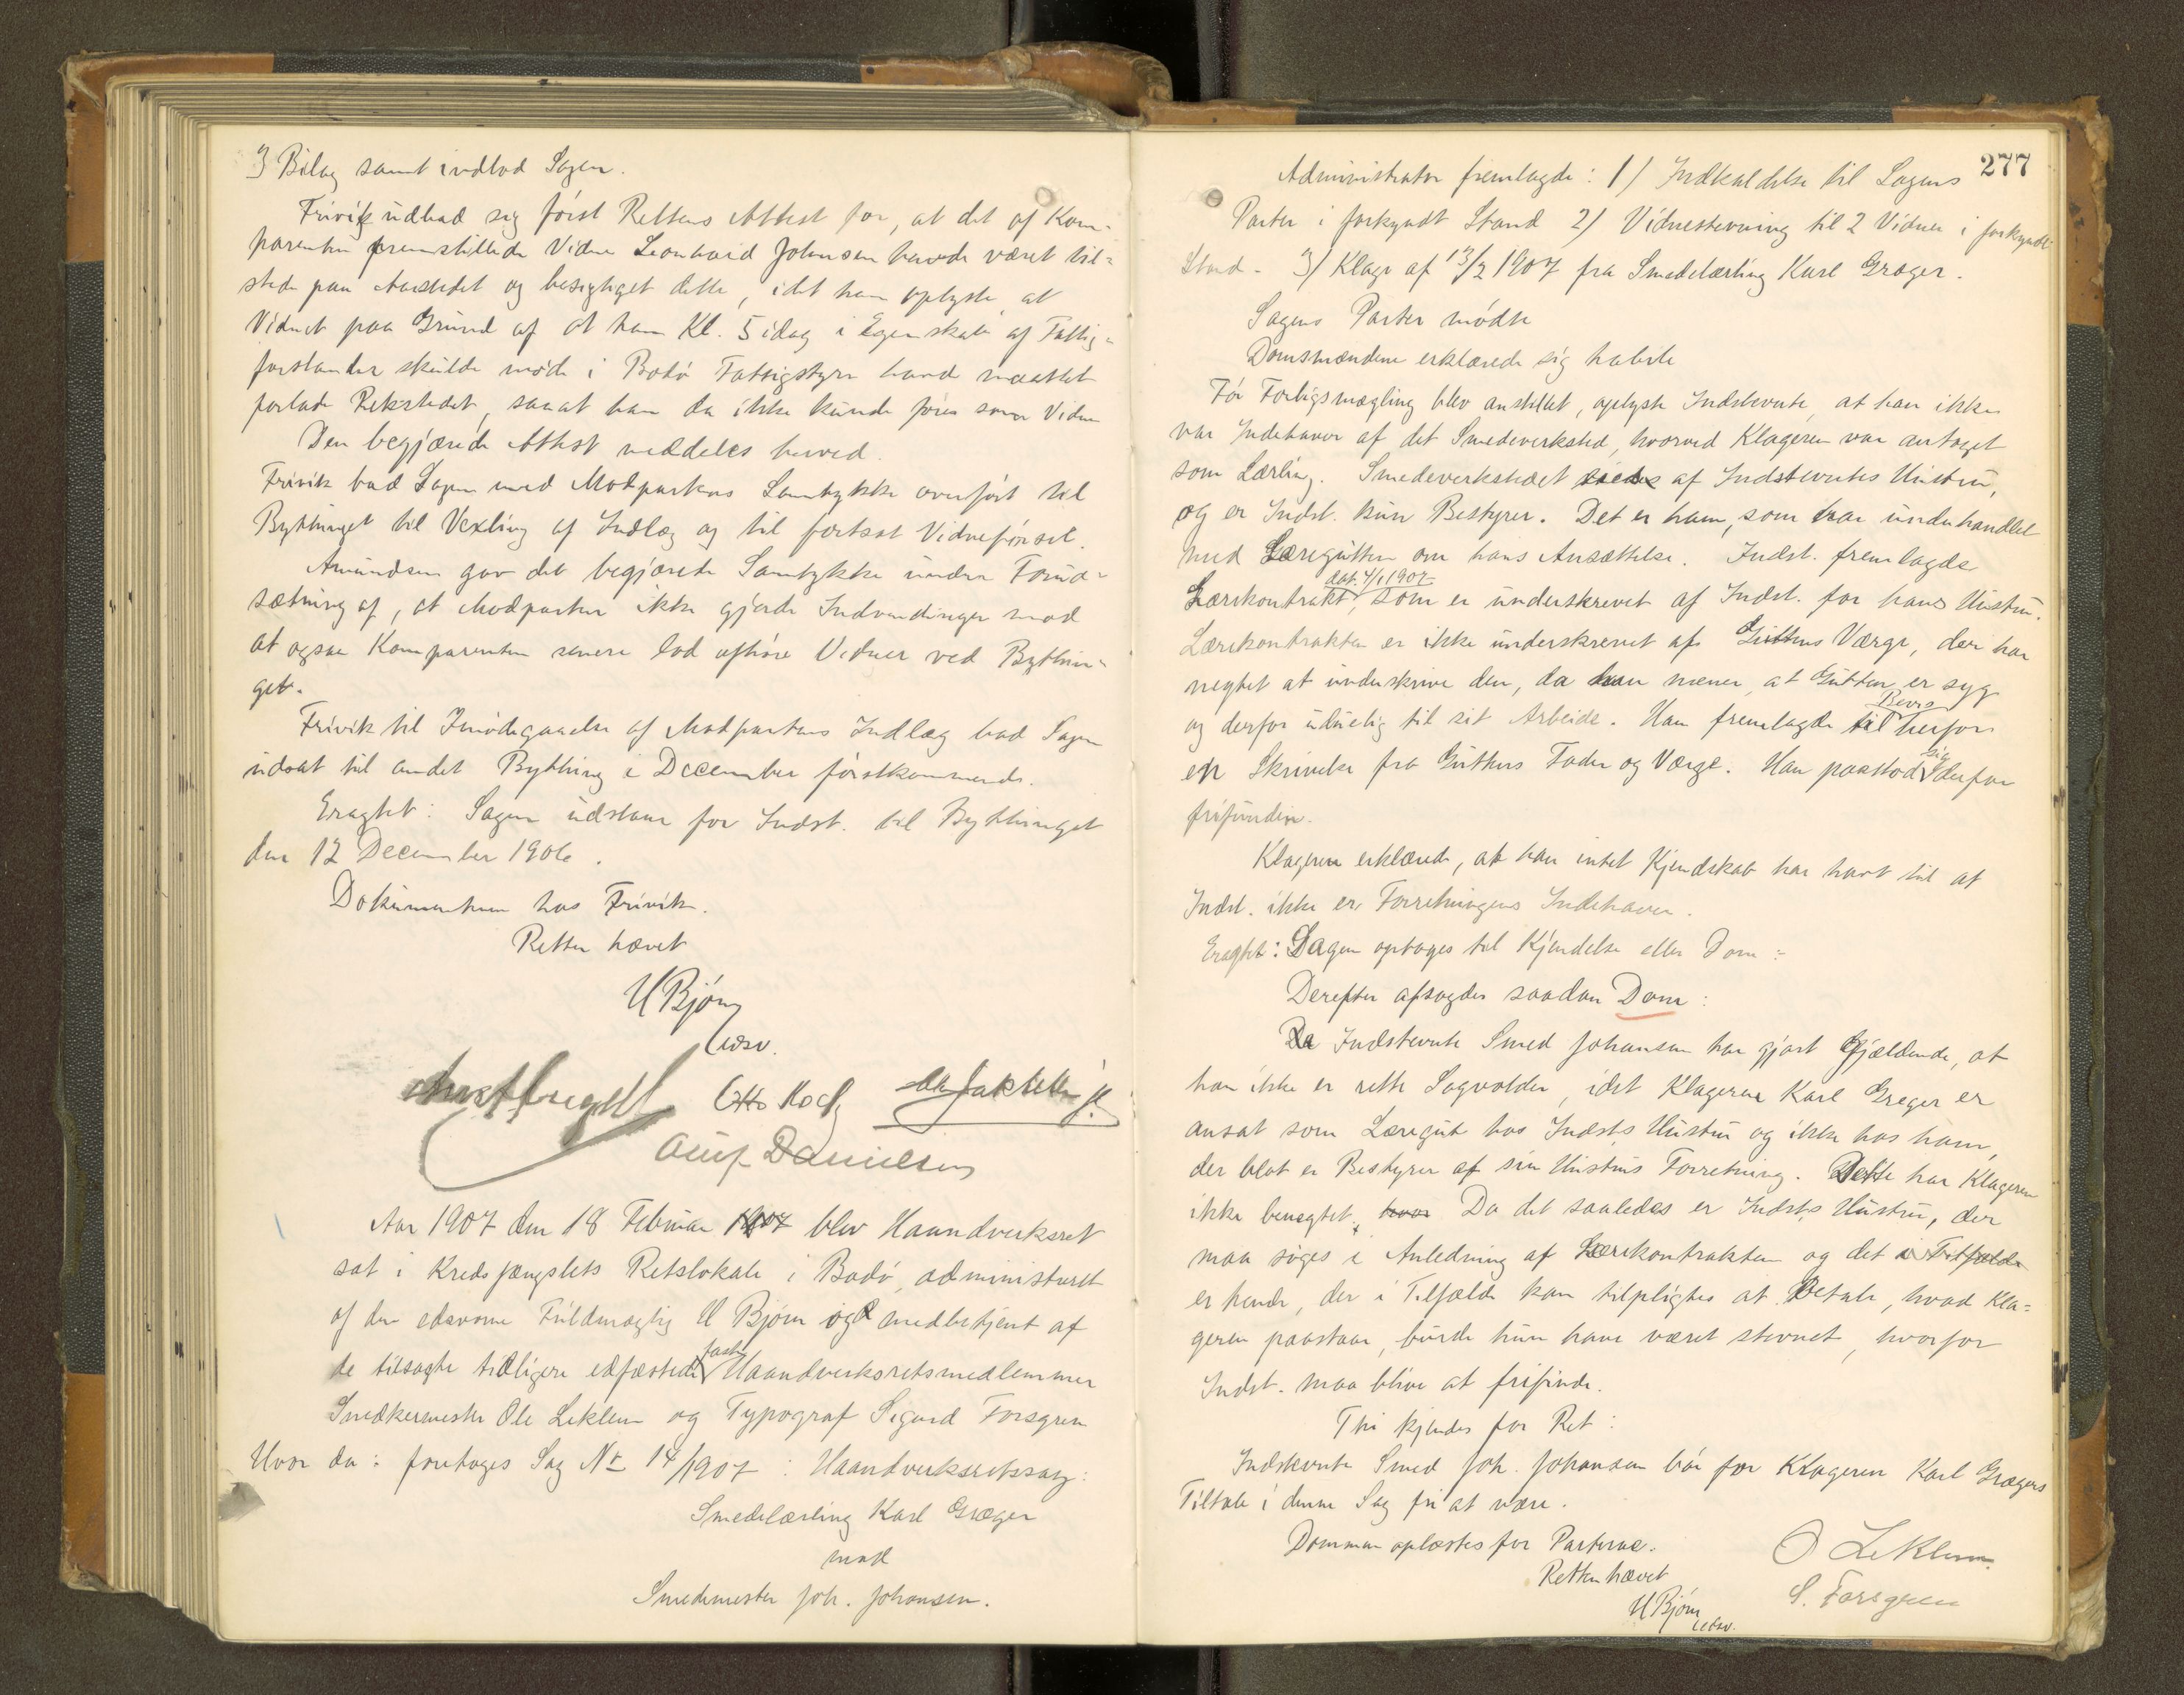 3 Bilag samt indlod Sagen.
Frivik udbad sig først Rettens Attest for, at det af Kom-
parenten fremstillede Vidne Leonhard Johnsen havde været til-
stede paa Aastedet og besigtiget dette, idet han oplyste, at
Vidnet paa Grund af at han Kl. 5 idag i Egenskab af Fattig-
forstander skulde møde i Bodø Fattigstyre havde maattet
forlade Retstedet, saaat han da ikke kunde føres som Vidne
Den begjærede Attest meddeles herved.
Frivik bad Sagen med Modpartens Samtykke overført til
Bythinget til Vexling af Indlæg og til fortsat Vidneførsel.
Amundsen gav det begjærede Samtykke under Forud-
sætning af, at Modparten ikke gjorde Indvendinger mod
at ogsaa Komparenten senere lod afhøre Vidner ved Bythin-
get.
Frivik til Imødegaaelse af Modpartens Indlæg bad Sagen
udsat til andet Bything i December førstkommende.
Eragtet: Sagen udstaar for Indst. til Bythinget
den 12 December 1906.
Dokumenterne hos Frivik.
Retten hævet
U Bjørn
edsv.
Otto Koch
Oluf Danielsen
Aar 1907 den 18 Februar 1907 blev Haandverksret
sat i Kredsfængslets Retslokale i Bodø, administreret
af den edsvorne Fuldmægtig U Bjørn og medbetjent af
de tilsagte tidligere edfæstede faste Haandverksretsmedlemmer
Snedkermester Ole Leklem og Typograf Sigurd Forsgren
Hvor da: foretoges Sag No 14/1907: Haandverksretssag:
Smedelærling Karl Græger
mod
Smedemester Joh. Johansen.
277
Administrator fremlagde: 1) Indkaldelse til Sagens
Parter i forkyndt Stand 2) Vidnestevning til 2 Vidner i forkyndt
Stand - 3) Klage af 13/2 1907 fra Smedelærling Karl Græger.
Sagens Parter mødte
Domsmændene erklærede sig habile
Før Forligsmægling blev anstillet, oplyste Indstevnte, at han ikke
var Indehaver af det Smedeverksted, hvorved Klageren var antaget
som Lærling. Smedeverkstedet eiedes af Indstevntes Hustru,
og er Indst. kun Bestyrer. Det er ham, som har underhandlet
med Læregutten om hans Ansættelse. Indst. fremlagde
Lærekontrakt, dat. 4/1 1907 som er underskrevet af Indst. for hans Hustru.
Lærekontrakten er ikke underskrevet af Guttens Værge, der har
negtet at underskrive den, da han mener, at Gutten er syg
og derfor uduelig til sit Arbeide. Han fremlagde til Bevis herfor
en Skrivelse fra Guttens Fader og Værge. Han paastod sig derfor
frifunden.
Klageren erklærede, at han intet Kjendskab har havt til at
Indst. ikke er Forretningens Indehaver.
Eragtet: Sagen optages til Kjendelse eller Dom:
Derefter afsagdes saadan Dom:
Da Indstevnte Smed Johansen har gjort gjældende, at
han ikke er rette Sagvolder, idet Klageren Karl Græger er
ansat som Læregut hos Indsts Hustru og ikke hos ham,
der blot er Bestyrer af sin Hustrus Forretning. Dette har Klageren
ikke benegtet. hvor Da det saaledes er Indsts Hustru, der
maa søges i Anledning af Lærekontrakten og det i Tilfælde
er hende, der i Tilfælde kan tilpligtes at betale, hvad Kla-
geren paastaar, burde hun have været stevnet, hvorfor
Indst. maa blive at frifinde.
Thi kjendes for Ret:
Indstevnte Smed Joh. Johansen bør for Klageren Karl Grægers
Tiltale i denne Sag fri at være.
Dommen oplæstes for Parterne.
Retten hævet
U Bjørn
edsv.
O Leklem
S. Forsgren